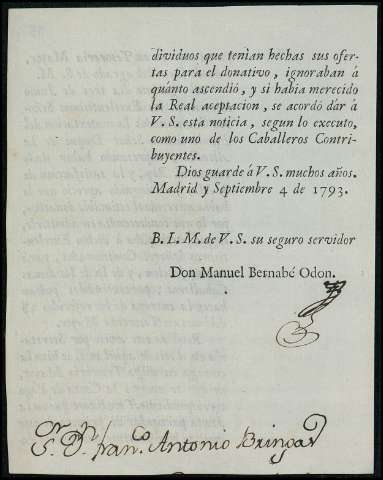 dividuos que tenìan hechas sus ofer-
tas para el donativo, ignoraban á
quanto ascendió, y si habia merecido
la Real aceptacion, se acordó dár á
V. S. esta noticia, segun lo executo,
como uno de los Caballeros Contri-
buyentes.
Dios guarde á V. S. muchos años.
Madrid y Septiembre 4 de 1793.
B. L. M. de V. S. su seguro servidor
Don Manuel Bernabé Odon.
Sr. Dn. Franco. Antonio Bringas